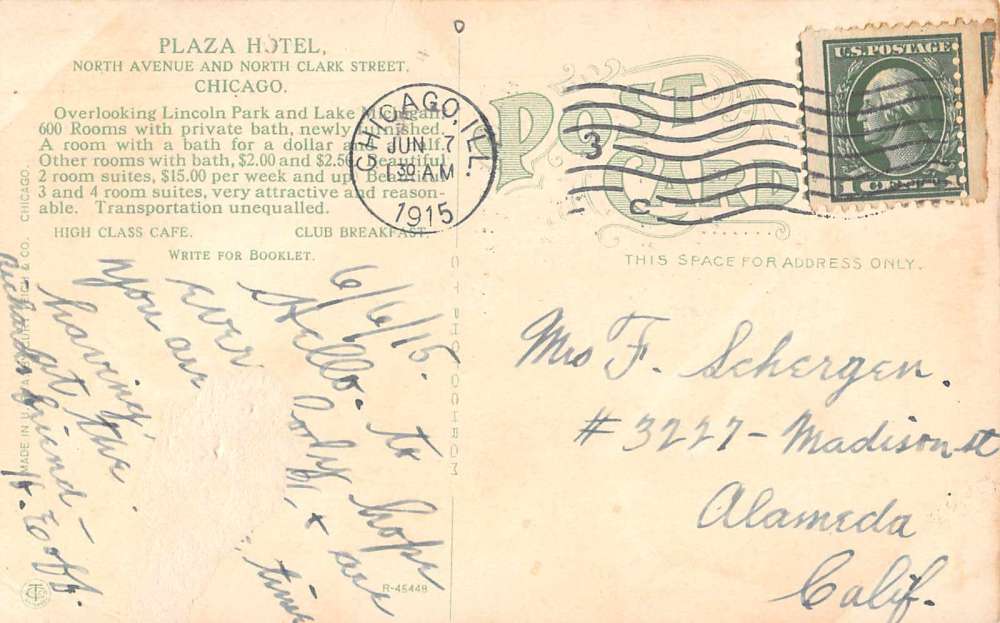 PLAZA HOTEL,
NORTH AVENUE AND NORTH CLARK STREET,
CHICAGO.
Overlooking Lincoln Park and Lake Michigan
600 Rooms with private bath, newly furnished.
A room with a bath for a dollar a half.
Other rooms with bath, $2.00 and $2.50 Beautiful
2 room suites, $15.00 per week and up.
3 and 4 room suites, very attractive and reason-
able. Transportation unequalled.
HIGH CLASS CAFE. CLUB BREAKFAST.
WRITE FOR BOOKLET.
CHICAGO, ILL.
JUN 7
1 30 AM
1915
3
C
U.S. POSTAGE
1
POST
CARD
THIS SPACE FOR ADDRESS ONLY.
6/6/15.
Hello. to
hope
are
time
ever
you are
having,
at the
friend -
Mrs F. Schergen.
#3227 - Madison st
Alameda
Calif.
MADE IN U.S.A.
& CO. CHICAGO.
R-45449